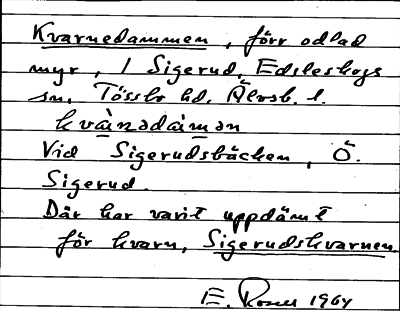 Kvarnedammen, förr odlad
myr, i Sigerud, Edsleskogs
sn, Tössbo hd. Älvsb. l.
kvà̀nədàmən
Vid Sigerudsbäcken, Ö.
Sigerud.
Där har varit uppdämt
för kvarn, Sigerudskvarnen.
E. 1964